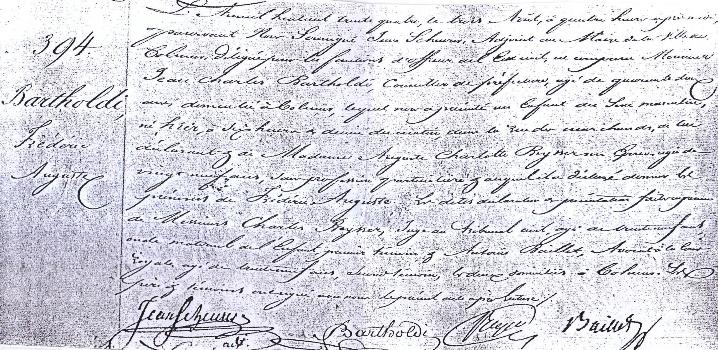 394.
Bartholdi,
Frédéric
Auguste
L'an mil huit cent trente quatre, le trois Août, à quatre heures après midi,
pardevant Nous Jean Scheurer, Adjoint au Maire de la Ville de
Colmar, délégué pour les fonctions d'officier de l'Etat civil, est comparu Monsieur
Jean Charles Bartholdi Conseiller de préfecture, âgé de quarante deux
ans, domicilié à Colmar, lequel nous a présenté un Enfant du Sexe masculin,
né hier, à Sept heures & demie du matin dans la rue des marchands, de lui
déclarant & de Madame Auguste Charlotte Beysser son Epouse, âgée de
vingt neuf ans, sans profession particulière & auquel il a déclaré donner les
prénoms de Frédéric Auguste. Les dites déclaration & présentation faites en présence
de Messieurs Charles Beysser, Juge au Tribunal civil, âgé de trente neuf ans
oncle maternel de l'Enfant premier témoin & Antoine Baillet, Avocat à la Cour
Royale, âgé de trente neuf ans, second témoin, les deux domiciliés à Colmar. Les
père & témoins ont signé avec nous le présent acte après lecture/.
Jean Scheurer
adj. Bartholdi Beysser Baillet